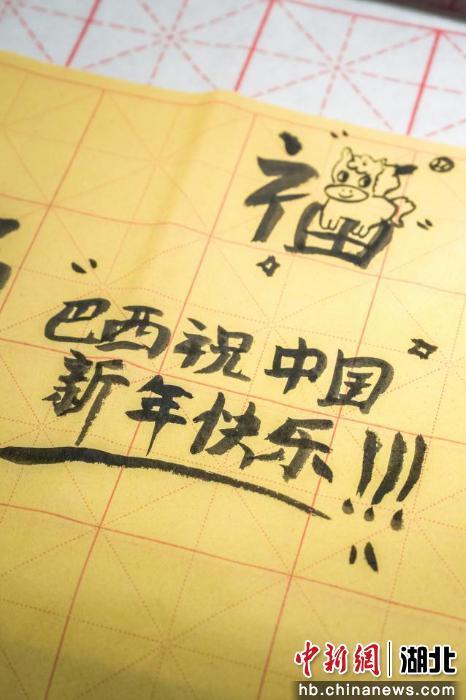 福
巴西祝中国
新年快乐!!!
中新網 湖北
hb.chinanews.com